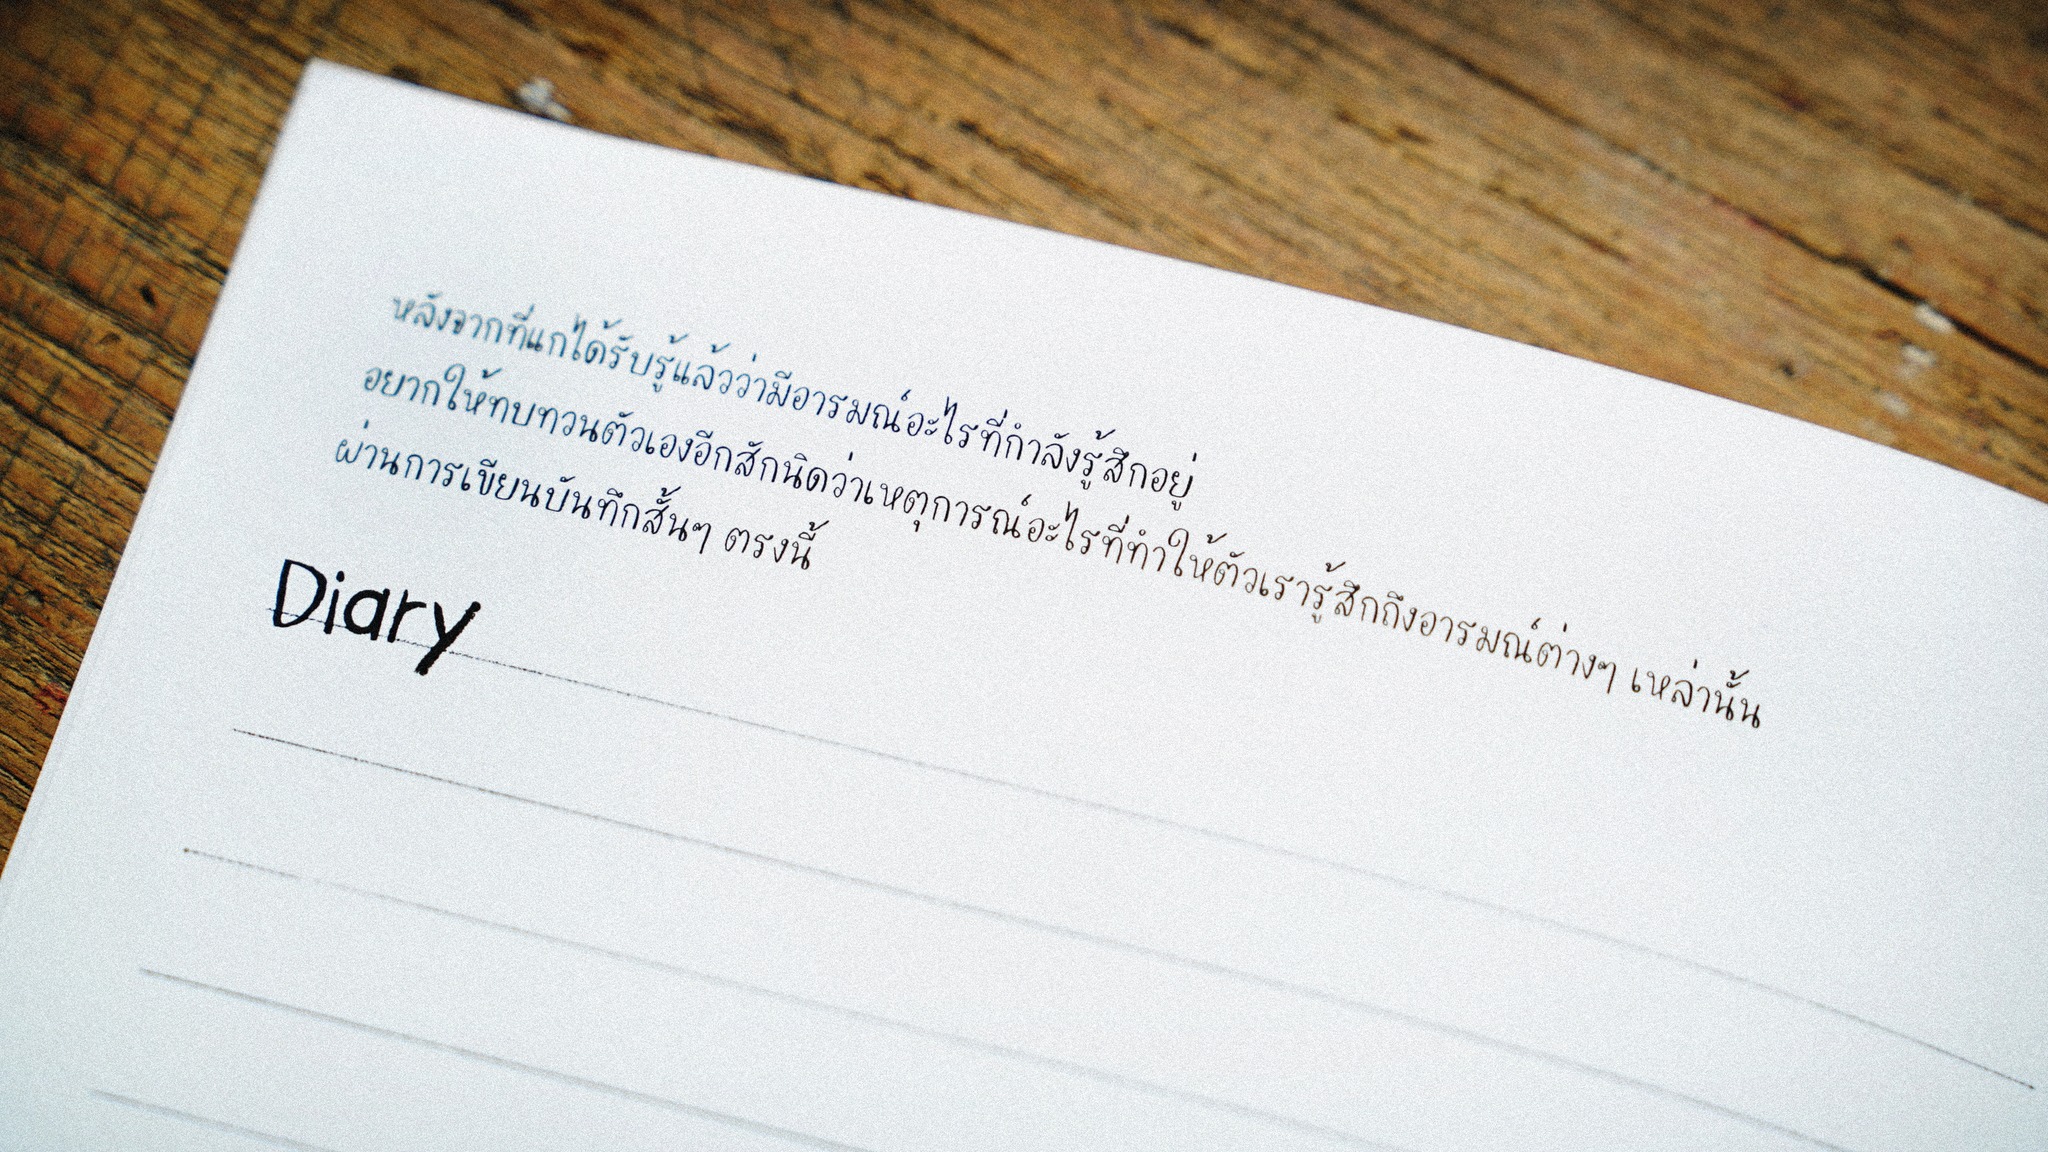 หลังจากที่แกได้รับรู้แล้วว่ามีอารมณ์อะไรที่กำลังรู้สึกอยู่
อยากให้ทบทวนตัวเองอีกสักนิดว่าเหตุการณ์อะไรที่ทำให้ตัวเรารู้สึกถึงอารมณ์ต่างๆ เหล่านั้น
ผ่านการเขียนบันทึกสั้นๆ ตรงนี้
Diary